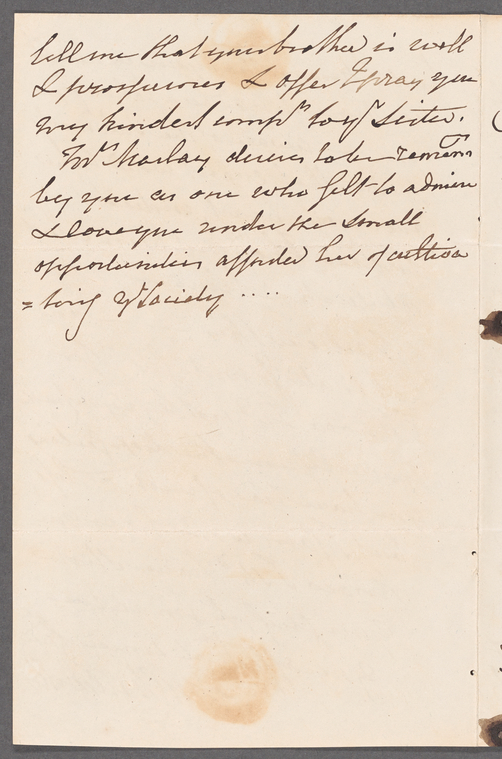 tell me that your brother is well
& prosperous & offer I pray you
my kindest comp.ts to y.r Sister.
Mrs. Marlay desires to be remem.d
by you as one who felt to admire
& love you under the small
opportunities afforded her of cultiva
=ting y.r Society ....